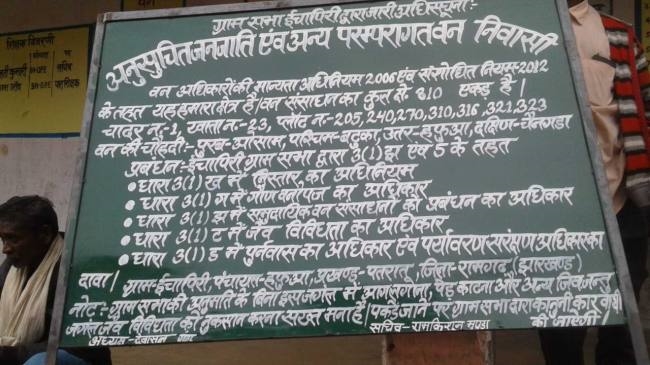 ग्राम सभा ईचापिरी द्वारा जारी अधिसूचना :-
अनुसुचित जनजाति एंव अन्य परम्परागत वन निवासी
वन अधिकारों की मान्यता अधिनियम 2006 एंव संसोधित नियम-2012
के तहत यह हमारा क्षेत्र है। वन संसाधन का कुल रो 810 एकड़ है।
थावर न.-1, खाता न.- 23, प्लौट न.- 205,240,270,310,316,321,323
वन की चौहदी:- पुरब-ओसाम, पश्चिम-बटुका, उतर-हफुआ, दक्षिण-चैनगडा
प्रबंधन:- ईचापिरी ग्राम सभा द्वारा 3(1) झ एंव 5 के तहत
• धारा 3(1) ख में विस्तार का अधिनियम
• धारा 3(1) ग में गौण वनोपज का अधिकार
• धारा 3(1) झ में समुदायिक वन संसाधनों का प्रबंधन का अधिकार
• धारा 3(1) ट में जैव विविधता का अधिकार
• धारा 3(1) ड में पुर्नवास का अधिकार एंव पर्यावरण संरक्षण अधिकार का
दावा।
ग्राम-ईचापिरी, पंचायत-हफुआ, प्रखण्ड-पतरातु, जिला-रामगढ (झारखण्ड)
नोट:- ग्राम सभा की अनुमति के बिना इस जंगल में आग लगाना, पेड़ काटना और अन्य जिवजन्तु,
जंगल जैव विविधता को नुकसान करना सख्त मना है। पकड़े जाने पर ग्राम सभा द्वारा कानूनी कार्यवाही
की जाऐगी।
अध्यक्ष-देवासन
सचिव-रामकिशन मुण्डा